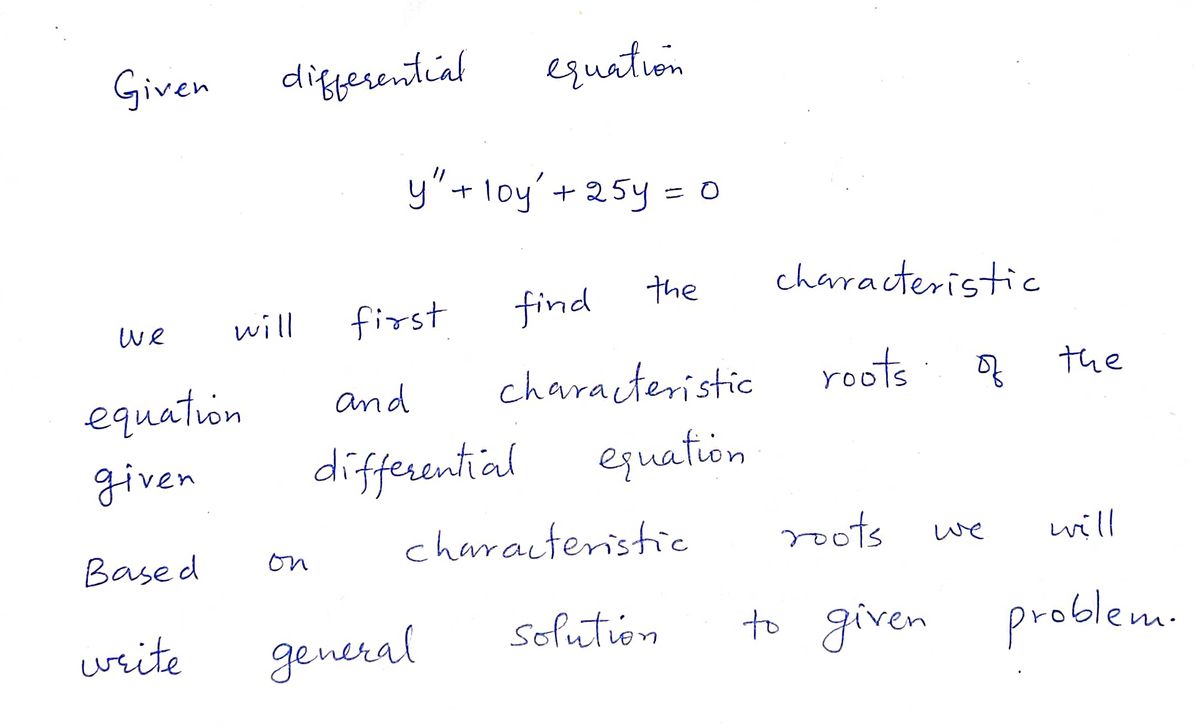 Given differential equation
y'' + 10y' + 25y = 0
we will first find the characteristic
equation and characteristic roots of the
given differential equation
Based on characteristic roots we will
write general solution to given problem.